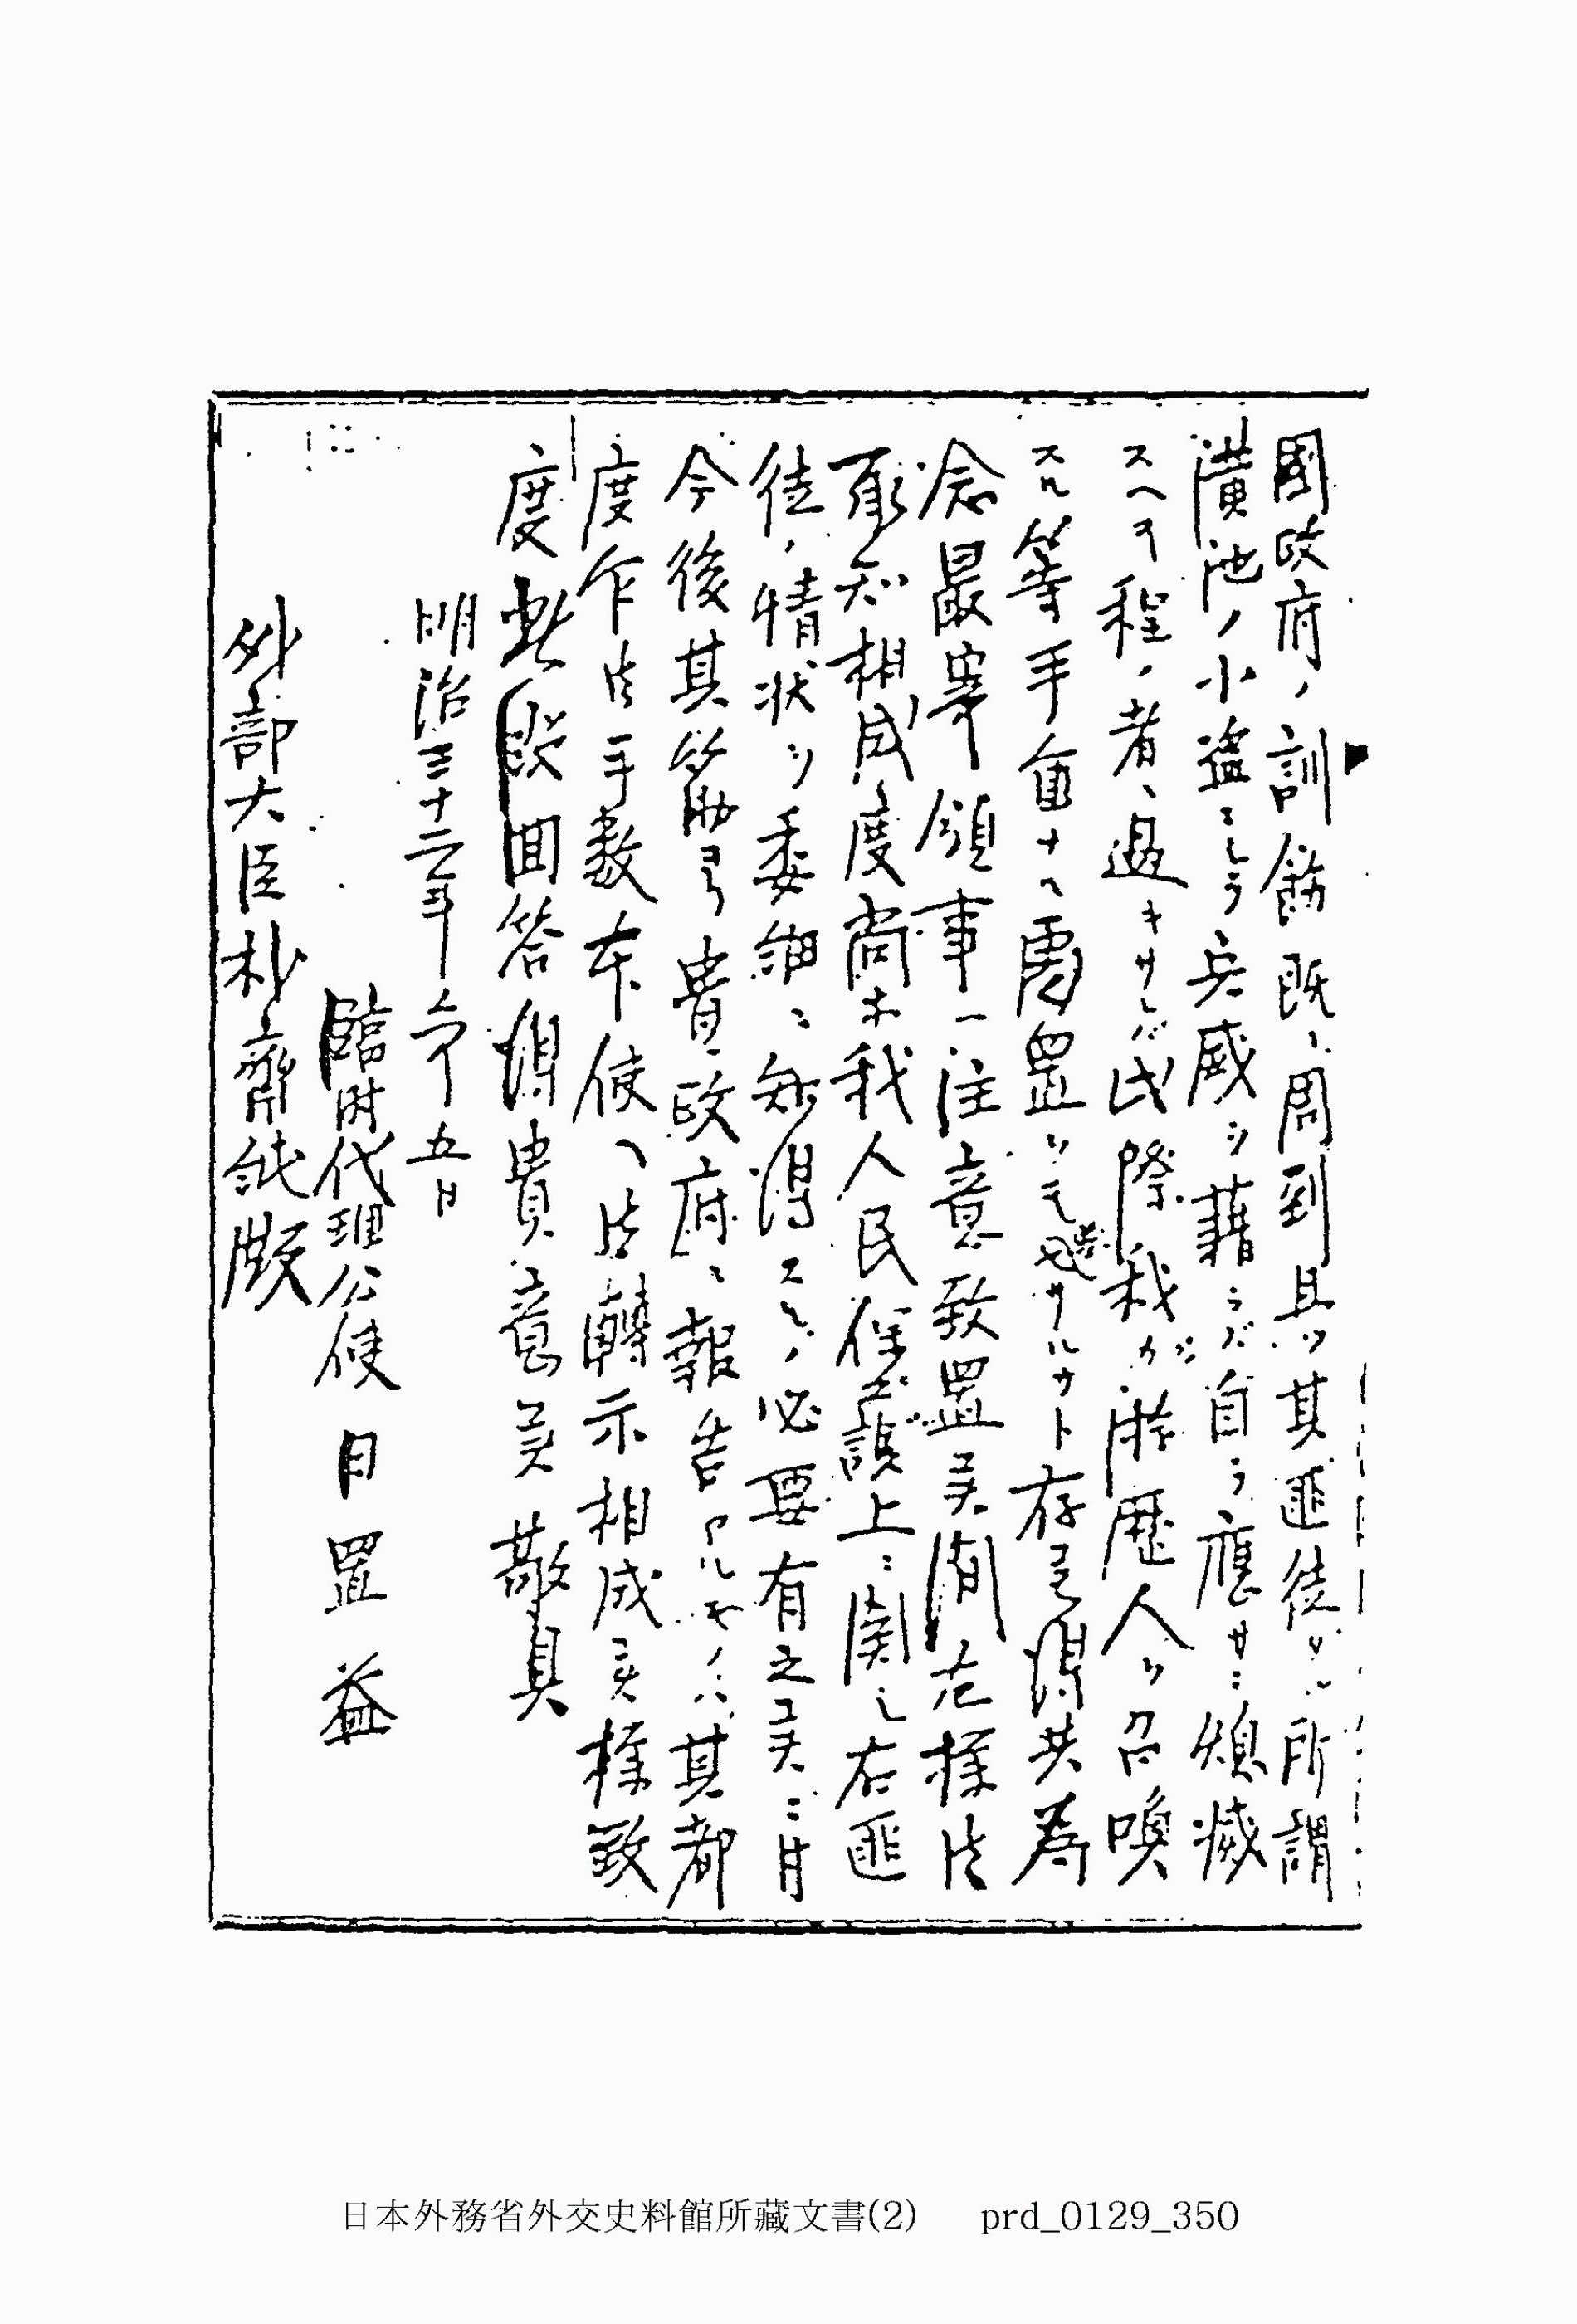 國政府ノ訓飭既ニ周到且ツ其匪徒タル所謂
潢池ノ小盜ニシテ兵威ヲ藉ラバ自ラ應サニ熄滅
スヘキ程ノ者ニ過キサレバ此際我ガ游歷人ヲ召喚
スル等手重ナル處置ヲモ要セサルカト存シ得共爲
念最寄領事ヘ注意致置候間左樣御
承知相成度尚ホ我人民保護上ニ關シ右匪
徒ノ情状ヲ委細ニ知得スルノ必要有之候ニ付
今後其筋ヨリ貴政府ニ報告アルモノハ其都
度乍御手數本使ヘ御轉示相成候樣致
度此段回答得貴意候敬具
明治三十二年六月五日
臨時代理公使日置益
外部大臣朴齊純殿
日本外務省外交史料館所藏文書(2) prd_0129_350